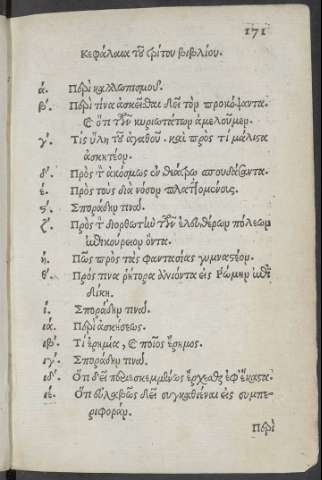 171
Κεφάλαια τοῦ τρίτου βιβλίου.
ά. Περὶ καλλωπισμοῦ.
β'. Περὶ τίνα ἀσκεῖσθαι δεῖ τὸν προκόψαντα.
καὶ ὅτι τῶν κυριωτάτων ἀμελοῦμεν.
γ'. Τίς ὕλη τοῦ ἀγαθοῦ. καὶ πρὸς τί μάλιστα
ἀσκητέον.
δ'. Πρὸς τὸν ἀκόσμως ἐν θεάτρῳ σπουδάσαντα.
έ. Πρὸς τοὺς διὰ νόσον πλαττομένους.
ϛ'. Σποράδην τινά.
ζ'. Πρὸς τὸν διορθωτὴν τῶν ἐλευθέρων πόλεων
ἐπικούρειον ὄντα.
ή. Πῶς πρὸς τὰς φαντασίας γυμναστέον.
θ'. Πρός τινα ῥήτορα ἀνιόντα εἰς Ῥώμην ἐπὶ
δίκῃ.
ί. Σποράδην τινά.
ιά. Περὶ ἀσκήσεως.
ιβ'. Τί ἐρημία, καὶ ποῖος ἔρημος.
ιγ'. Σποράδην τινά.
ιδ'. Ὅτι δεῖ περιεσκεμμένως ἔρχεσθαι ἐφ' ἕκαστα.
ιέ. Ὅτι εὐλαβῶς δεῖ συγκαθιέναι εἰς συμπε-
ριφοράν.
Περὶ